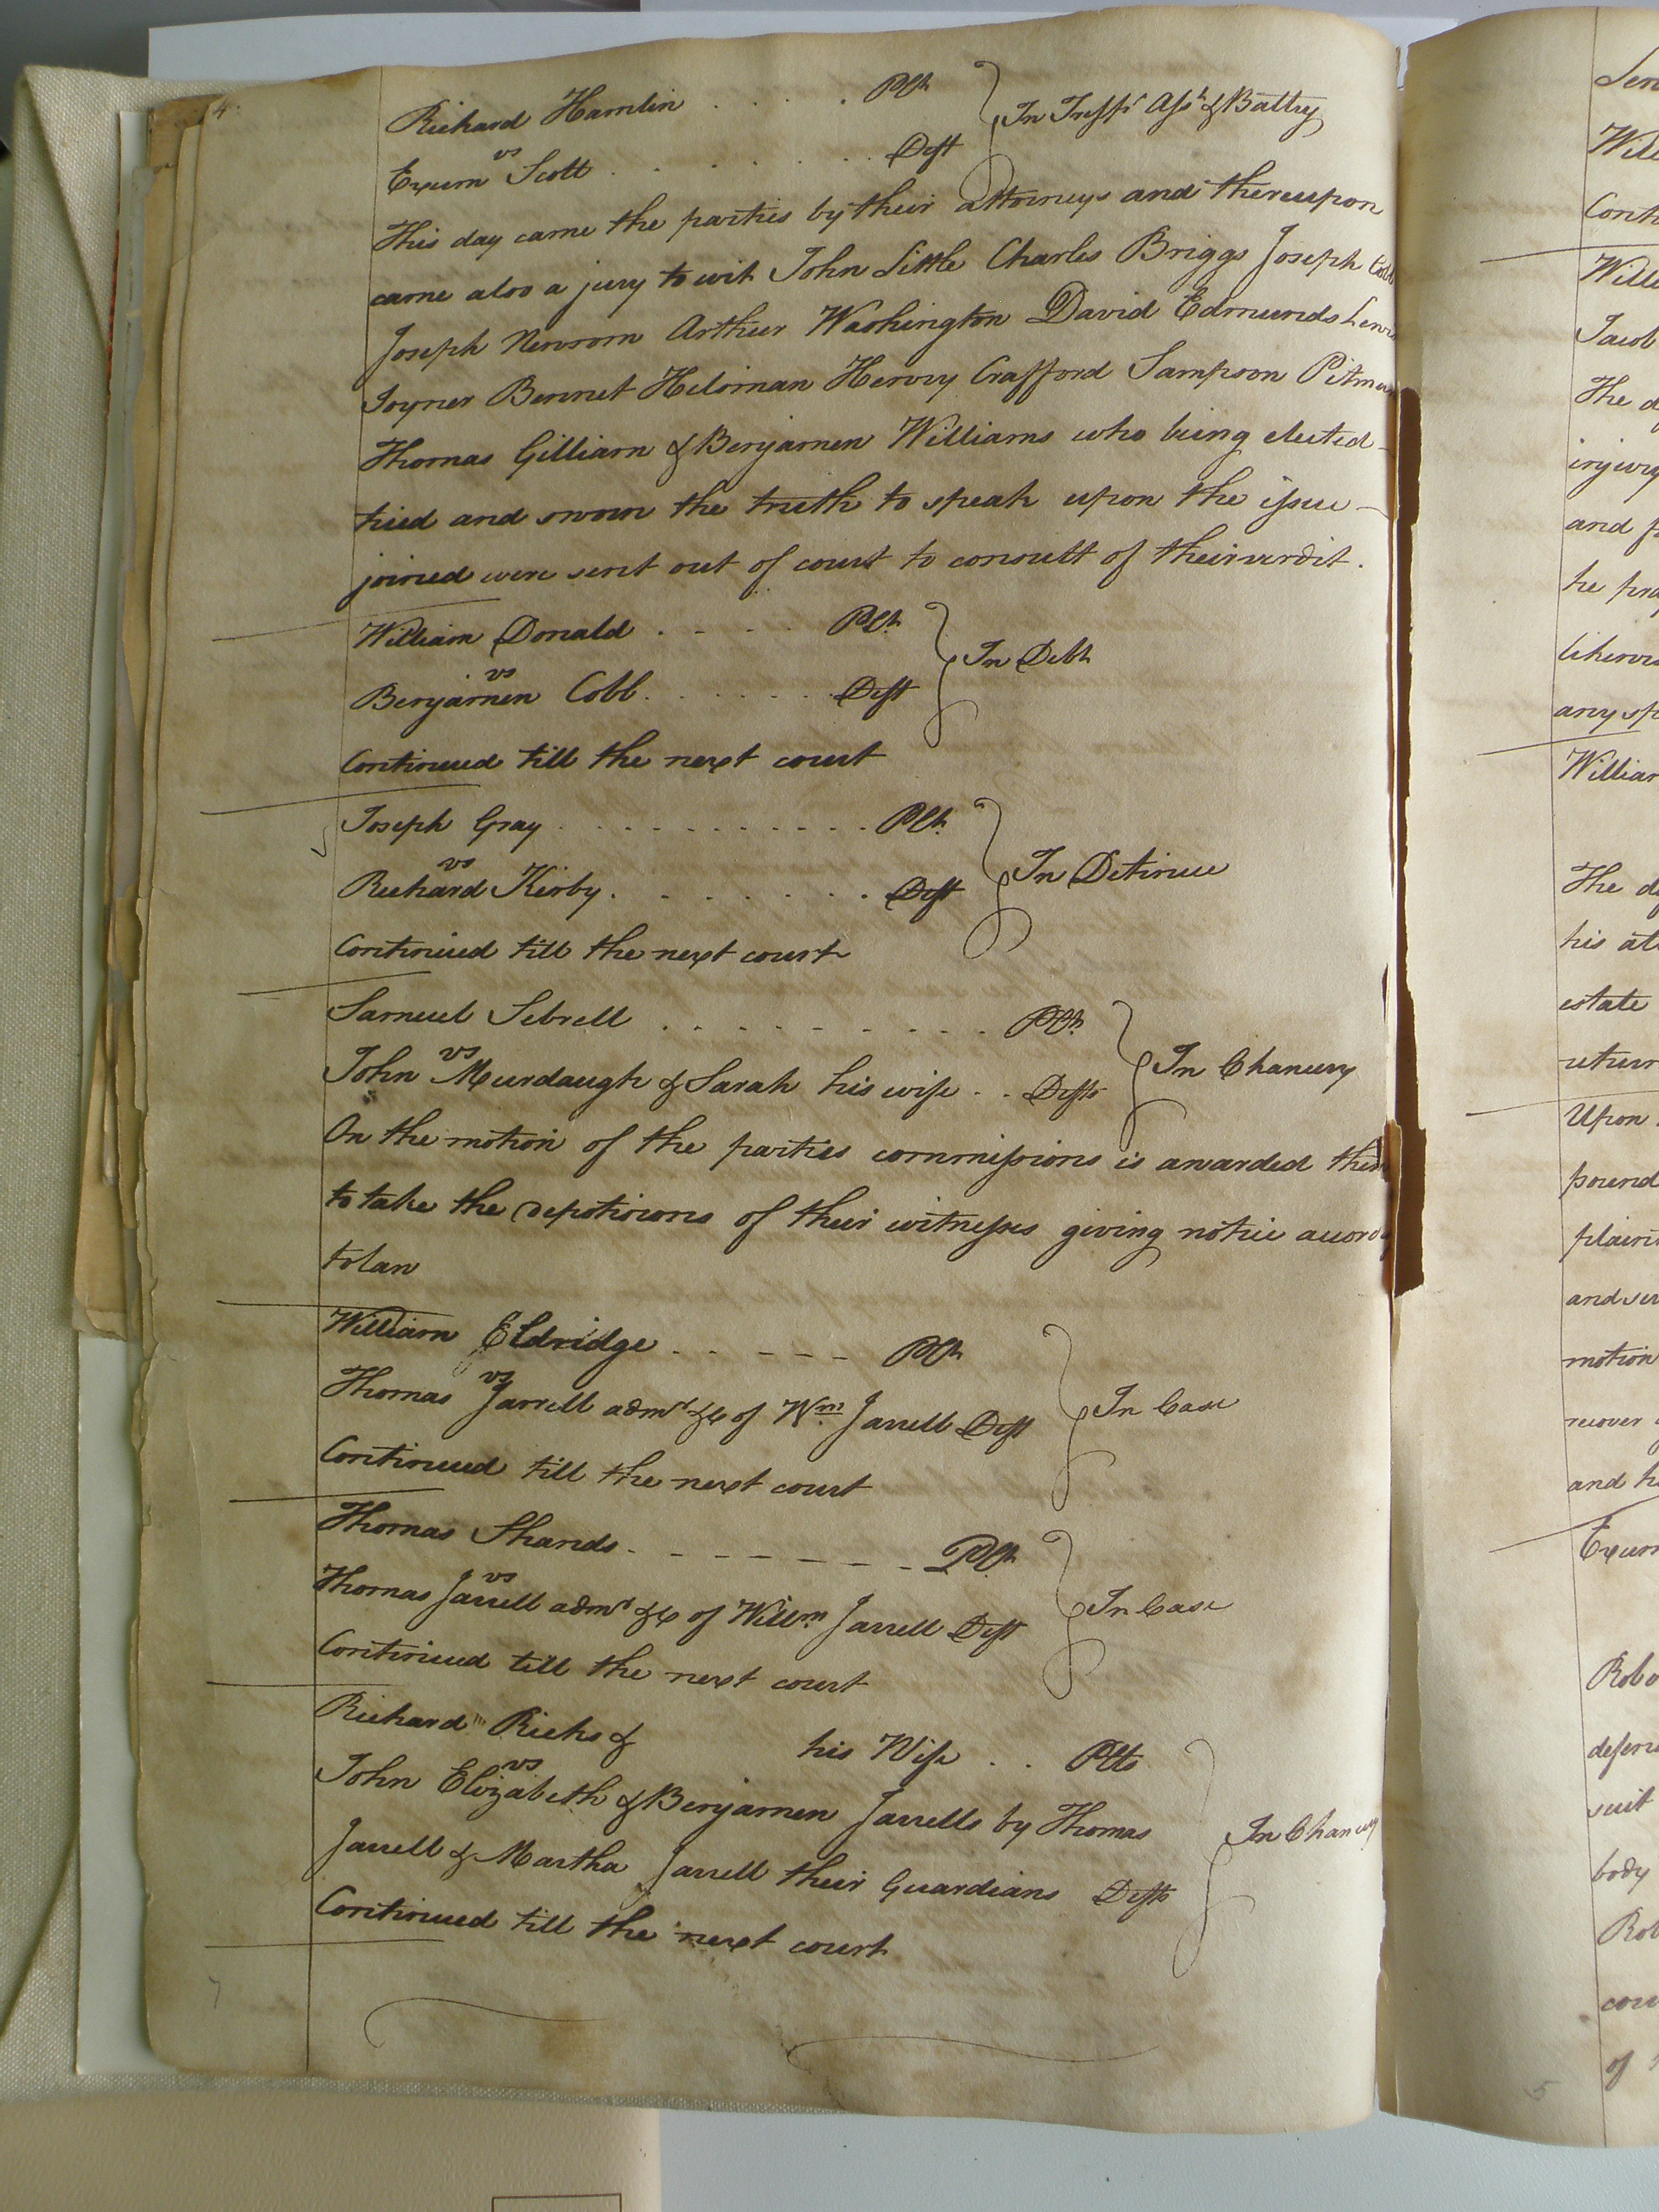 4
Richard Hamlin . . . . . Plt
vs
Exum Scott . . . . . . . Deft
In Tresps Asst & Battry
This day came the parties by their attorneys and thereupon
came also a jury to wit John Little Charles Briggs Joseph Cobb
Joseph Newsom Arthur Washington David Edmunds Lewis
Joyner Bennet Hilsman Henry Crafford Sampson Pitman
Thomas Gilliam & Benjamen Williams who being elected
tried and sworn the truth to speak upon the issue
joined were sent out of court to consult of their verdit.
William Donald . . . . . Plt
vs
Benjamen Cobb . . . . . . . Deft
In Debt
Continued till the next court
Joseph Gray . . . . . . . . . . . . Plt
vs
Richard Kirby . . . . . . . . Deft
In Detinue
Continued till the next court
Samuel Sebrell . . . . . . . . . . Plt
vs
John Murdaugh & Sarah his wife . . Defts
In Chancery
On the motion of the parties commissions is awarded them
to take the depoticions of their witnesses giving notice accord
to law
William Eldridge . . - - - - Plt
vs
Thomas Jarrell admr &c of Wm Jarrell Deft
In Case
Continued till the next court
Thomas Shands . - - - - - - - Plt
vs
Thomas Jarrell admr &c of Willm Jarrell Deft
In Case
Continued till the next court
Richard Ricks & his Wife . . Plts
vs
John Elizabeth & Benjamen Jarrells by Thomas
Jarrell & Martha Jarrell their Guardians Defts
In Chancery
Continued till the next court
Will
Cont
Will
Jacob
The d
injury
and p
he pra
likewi
any sp
William
The de
his at
estate
return
Upon
pound
plaint
and
motion
recover
and h
Exum
Rob
defen
suit
body
Rob
cou
of
5